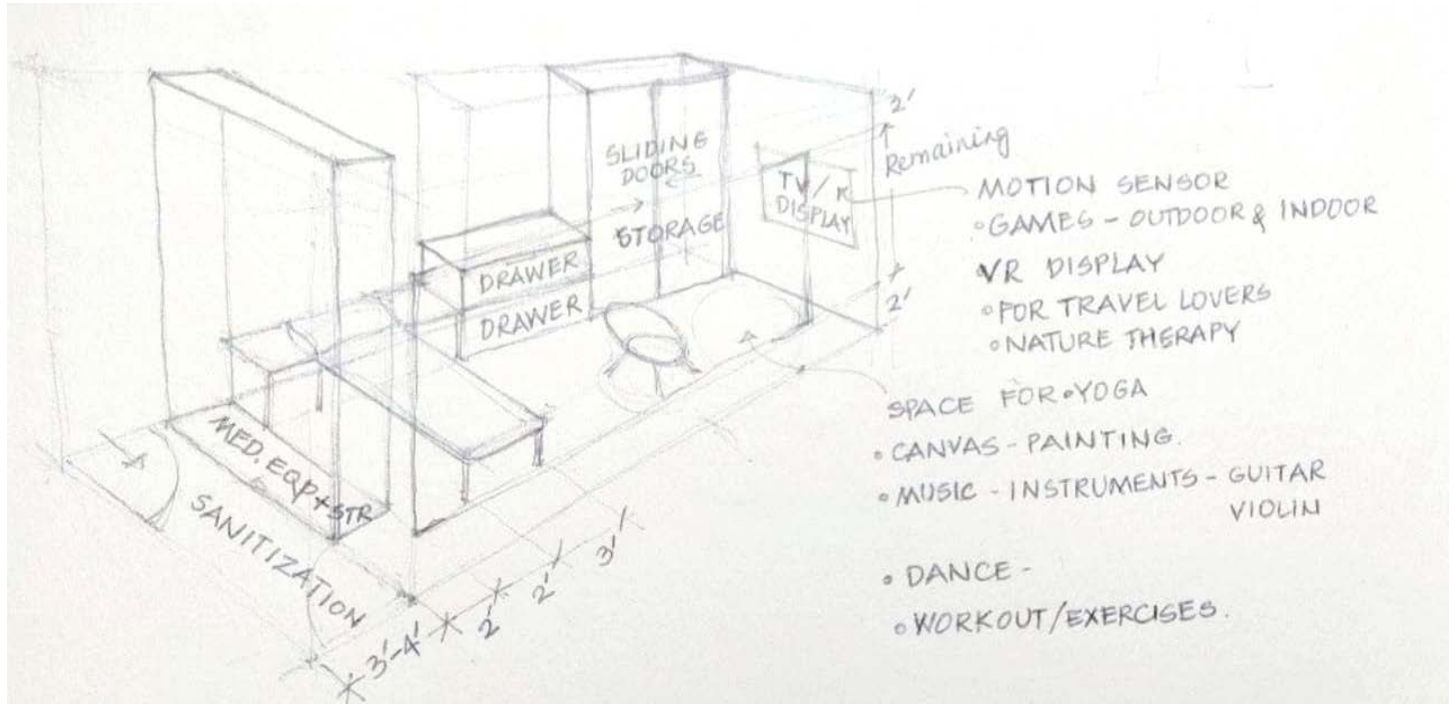 2'
Remaining
SLIDING
DOORS
STORAGE
TV/
DISPLAY
DRAWER
DRAWER
2'
MED. EQP + STR
SANITIZATION
3'-4'
2'
2'
3'
MOTION SENSOR
• GAMES - OUTDOOR & INDOOR
VR DISPLAY
• FOR TRAVEL LOVERS
• NATURE THERAPY
SPACE FOR • YOGA
• CANVAS - PAINTING.
• MUSIC - INSTRUMENTS - GUITAR
VIOLIN
• DANCE -
• WORKOUT/EXERCISES.